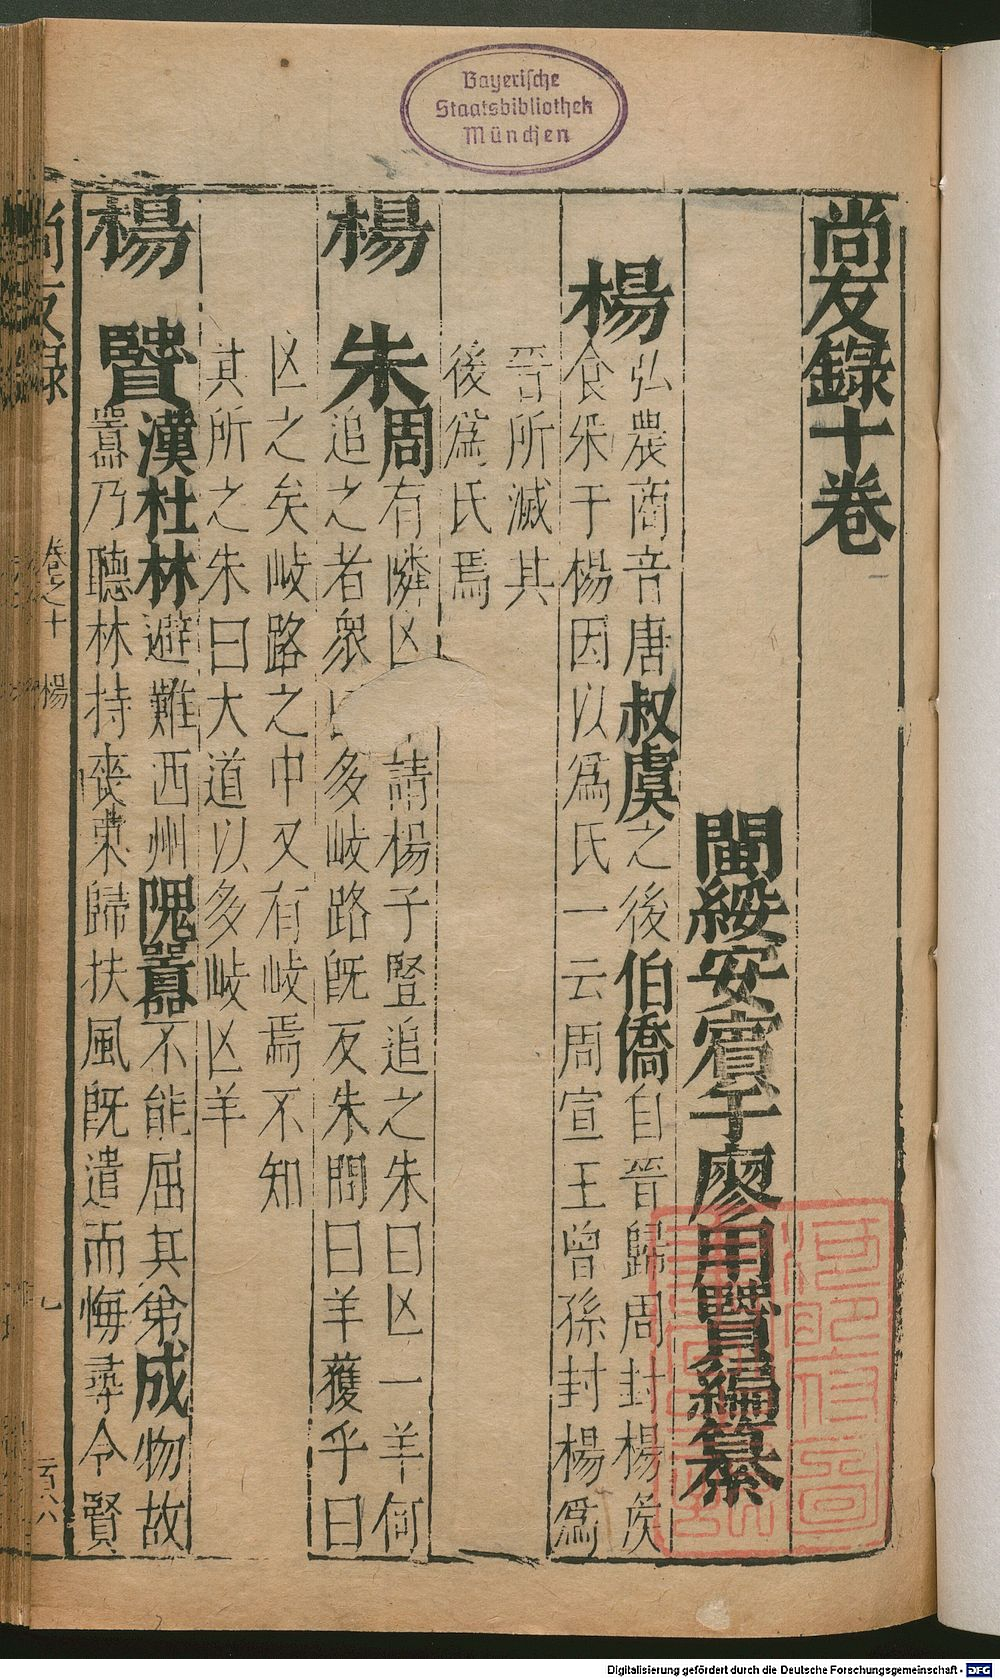 Bayerische
Staatsbibliothek
München
尚友錄十卷
閩綏安賓于廖用賢編纂
楊
弘農商音唐叔虞之後伯僑自晉歸周封楊矦
食采于楊因以爲氏一云周宣王曾孫封楊爲
晉所滅其
後爲氏焉
楊朱
周有隣亾請楊子豎追之朱曰亾一羊何
追之者衆多岐路旣反朱問曰羊獲乎曰
亾之矣岐路之中又有岐焉不知
其所之朱曰大道以多岐亾羊
楊賢
漢杜林避難西州隗囂不能屈其弟成物故
囂乃聽林持喪東歸扶風旣遣而悔尋令賢
尚友錄
卷之十
楊
Digitalisierung gefördert durch die Deutsche Forschungsgemeinschaft - DFG